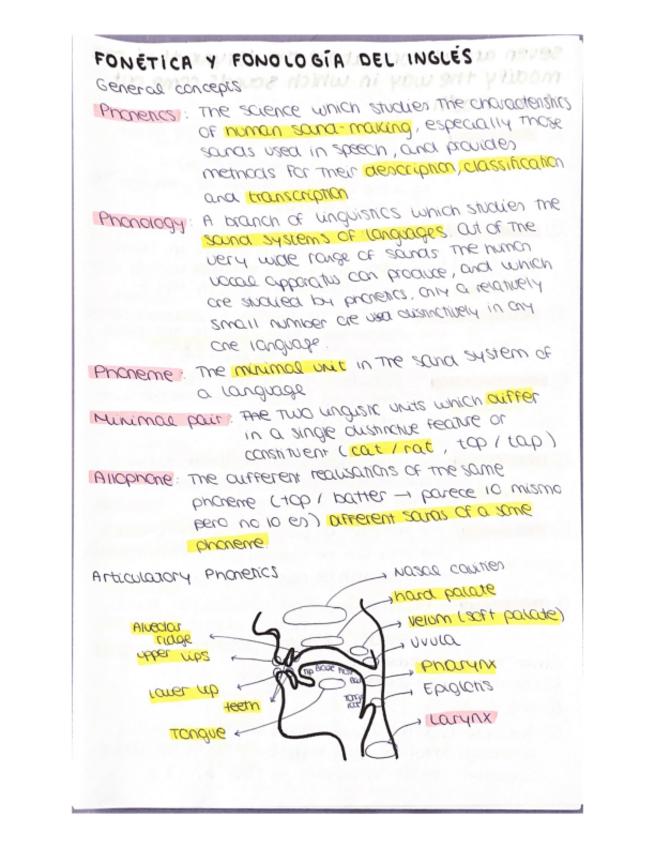 FONÉTICA Y FONOLOGÍA DEL INGLÉS
General concepts
Phonetics: The science which studies the characteristics
of human sound-making, especially those
sounds used in speech, and provides
methods for their description, classification
and transcription
Phonology: A branch of linguistics which studies the
sound systems of languages. Out of the
very wide range of sounds the human
vocal apparatus can produce, and which
are studied by phonetics, only a relatively
small number are used distinctively in any
one language.
Phoneme: The minimal unit in the sound system of
a language
Minimal pair: The two linguistic units which differ
in a single distinctive feature or
constituent (cat / rat, top / tap)
Allophone: The different realisations of the same
phoneme (top / batter → parece lo mismo
pero no lo es) different sounds of a same
phoneme.
Articulatory Phonetics
Nasal cavities
hard palate
Velum (soft palate)
Uvula
Pharynx
Epiglotis
Larynx
Alveolar
ridge
upper lips
lower lip
teeth
Tongue
Tip Blade Front
Back
Tongue
root